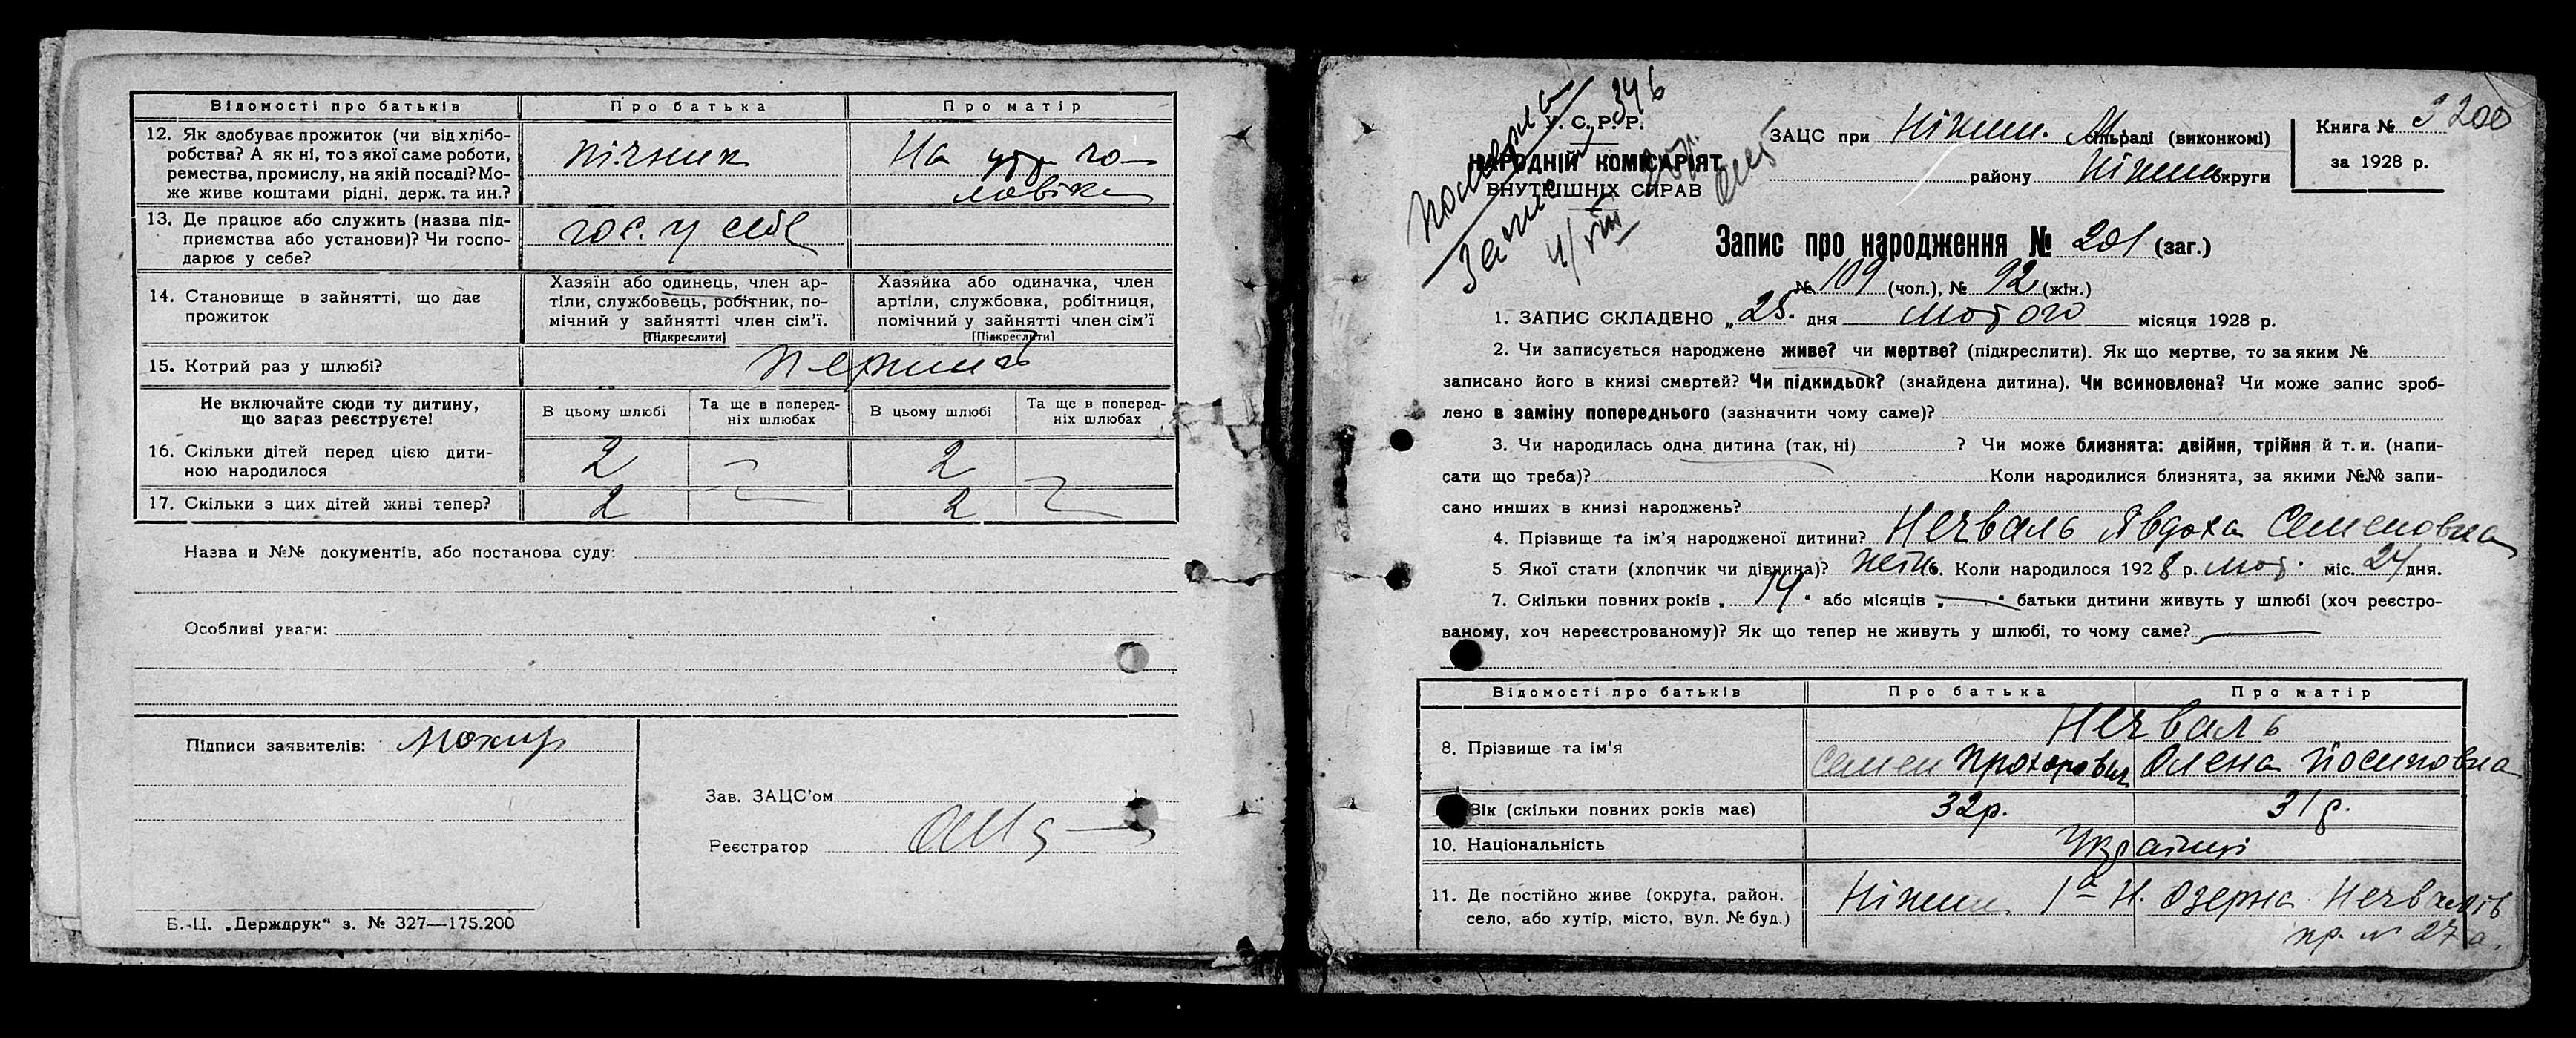 Відомості про батьків Про батька Про матір
12. Як здобуває прожиток (чи від хлібо-
робства? А як ні, то з якої саме роботи,
ремества, промислу, на якій посаді? Мо-
же живе коштами рідні, держ. та ин.?
пічник
На утр чо-
ловіка
13. Де працює або служить (назва під-
приємства або установи)? Чи госпо-
дарює у себе?
гос. у себе
14. Становище в зайнятті, що дає
прожиток
Хазяїн або одинець, член ар-
тілі, службовець, робітник, по-
мічний у зайнятті член сім'ї.
[Підкреслити]
Хазяйка або одиначка, член
артілі, службовка, робітниця,
помічний у зайнятті член сім'ї
[Підкреслити]
15. Котрий раз у шлюбі?
Не включайте сюди ту дитину,
що зараз реєструєте!
В цьому шлюбі
Та ще в поперед-
ніх шлюбах
В цьому шлюбі
Та ще в поперед-
ніх шлюбах
16. Скільки дітей перед цією дити-
ною народилося
2 — 2
17. Скільки з цих дітей живі тепер?
2 — 2
Назва и №№ документів, або постанова суду:
Особливі уваги:
Підписи заявителів:
Зав. ЗАЦС'ом
Реєстратор
Б.-Ц. „Держдрук“ з. № 327—175.200
Померла
Запис 346
У. С. Р. Р.
НАРОДНІЙ КОМІСАРІЯТ
ВНУТРІШНІХ СПРАВ
ЗАЦС при Ніжин. М. сільраді (виконкомі)
району Ніжин округи
Книга № 3 200
за 1928 р.
Запис про народження № 201 (заг.)
№ 109 (чол.), № 92 (жін.)
1. ЗАПИС СКЛАДЕНО „28. дня лютого місяця 1928 р.
2. Чи записується народжене живе? чи мертве? (підкреслити). Як що мертве, то за яким №
записано його в книзі смертей? Чи підкидьок? (знайдена дитина). Чи всиновлена? Чи може запис зроб-
лено в заміну попереднього (зазначити чому саме)?
3. Чи народилась одна дитина (так, ні) ? Чи може близнята: двійня, трійня й т. и. (напи-
сати що треба)? Коли народилися близнята, за якими №№ запи-
сано инших в книзі народжень?
4. Прізвище та ім'я народженої дитини? Нечваль Явдоха Семеновна
5. Якої стати (хлопчик чи дівчина)? жін. Коли народилося 1928 р. лют. міс. 24 дня.
7. Скільки повних років „ 14 “ або місяців „ — “ батьки дитини живуть у шлюбі (хоч реєстро-
ваному, хоч нереєстрованому)? Як що тепер не живуть у шлюбі, то чому саме? —
Відомості про батьків Про батька Про матір
8. Прізвище та ім'я
Нечваль
Семен Прохорович Олена Йосиповна
Вік (скільки повних років має) 32р. 31р.
10. Національність Українці
11. Де постійно живе (округа, район.
село, або хутір, місто, вул. № буд.)
Ніжин 1а Н. Озерна Нечвалів
пр. № 27а.